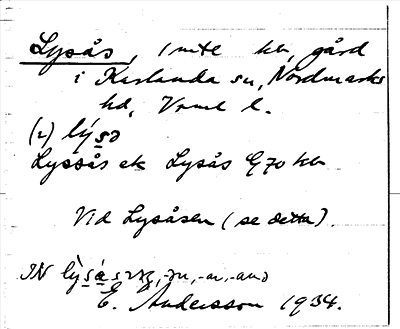 Lysås, 1 mtl kr, gård
i Karlanda sn, Nordmarks
hd, Vrml l.
(2) lýsɔ
Lyssås ek Lysås G70 kb
Vid Lysåsen (se detta).
IN lỳsá
E. Andersson 1934.